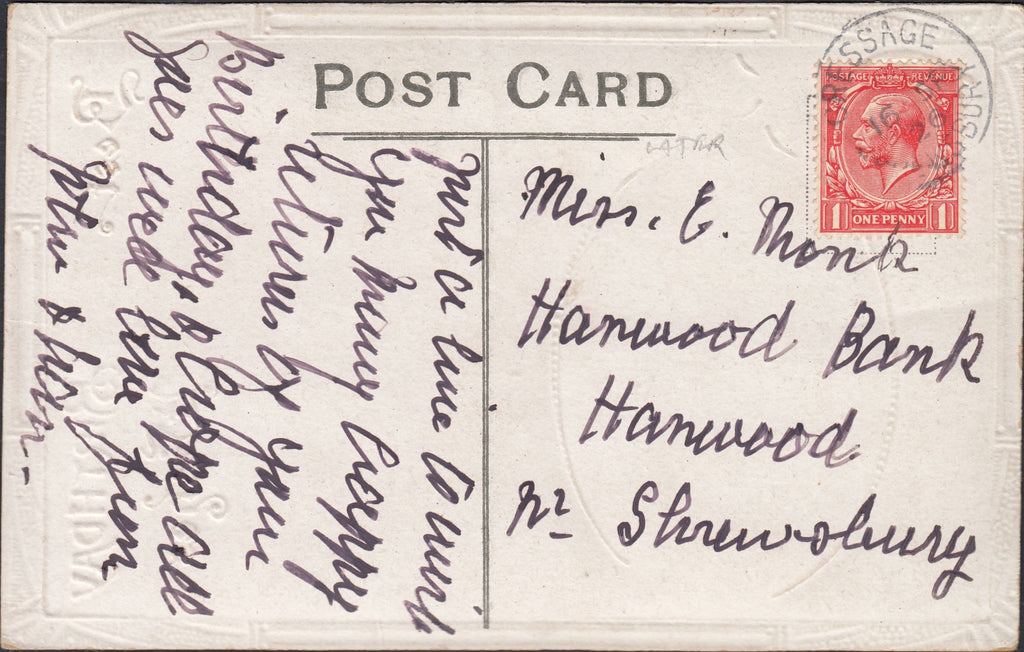 POST CARD
LATER
CRESSAGE
SHREWSBURY
16
POSTAGE REVENUE
1 ONE PENNY 1
Miss. E. Monk
Hanwood Bank
Hanwood
Nr Shrewsbury
Just a line to wish
you many happy
returns of your
Birthday, & hope all
goes well love from
BIRTHDAY